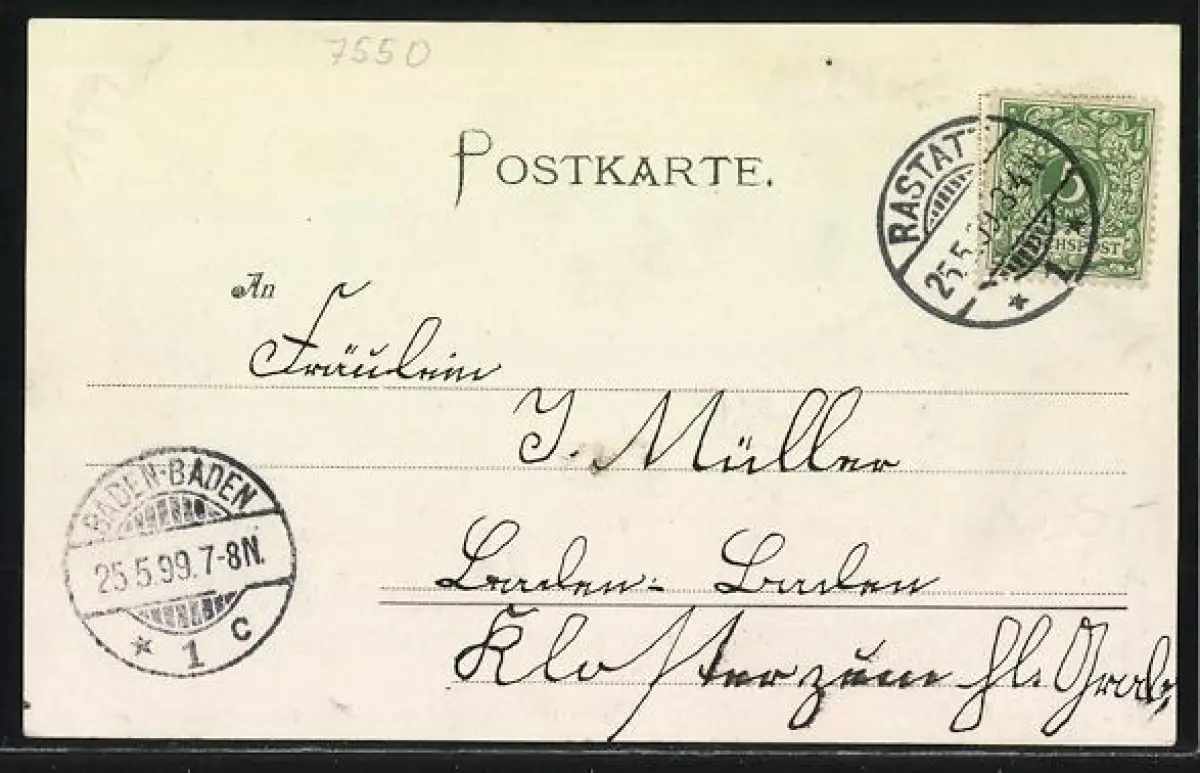 7550
POSTKARTE.
RASTATT
25.5.99.3-4N
* 1 *
5
REICHSPOST
An
Fräulein
J. Müller
Baden-Baden
Kloster zum hl. Grab,
BADEN-BADEN
25.5.99.7-8N.
* 1 c